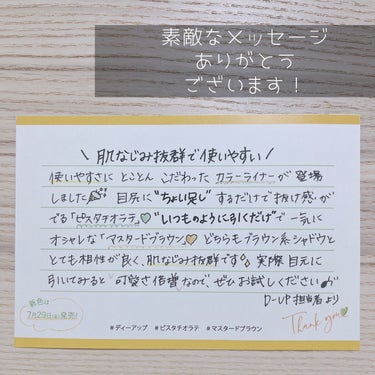 素敵なメッセージ
ありがとう
ございます！
\ 肌なじみ抜群で使いやすい /
使いやすさに とことん こだわった カラーライナーが 登場
しました 目尻に"ちょい足し"するだけで抜け感が
でる「ピスタチオラテ」"いつものように引くだけ"で 一気に
オシャレな「マスタードブラウン」 どちらもブラウン系シャドウと
とても相性が良く、肌なじみ抜群です 実際 目元に
引いてみると 可愛さ倍増なので、ぜひお試しください
D-UP 担当者 より
新色は
7月29日(金)発売!
Thank you
#ディーアップ #ピスタチオラテ #マスタードブラウン